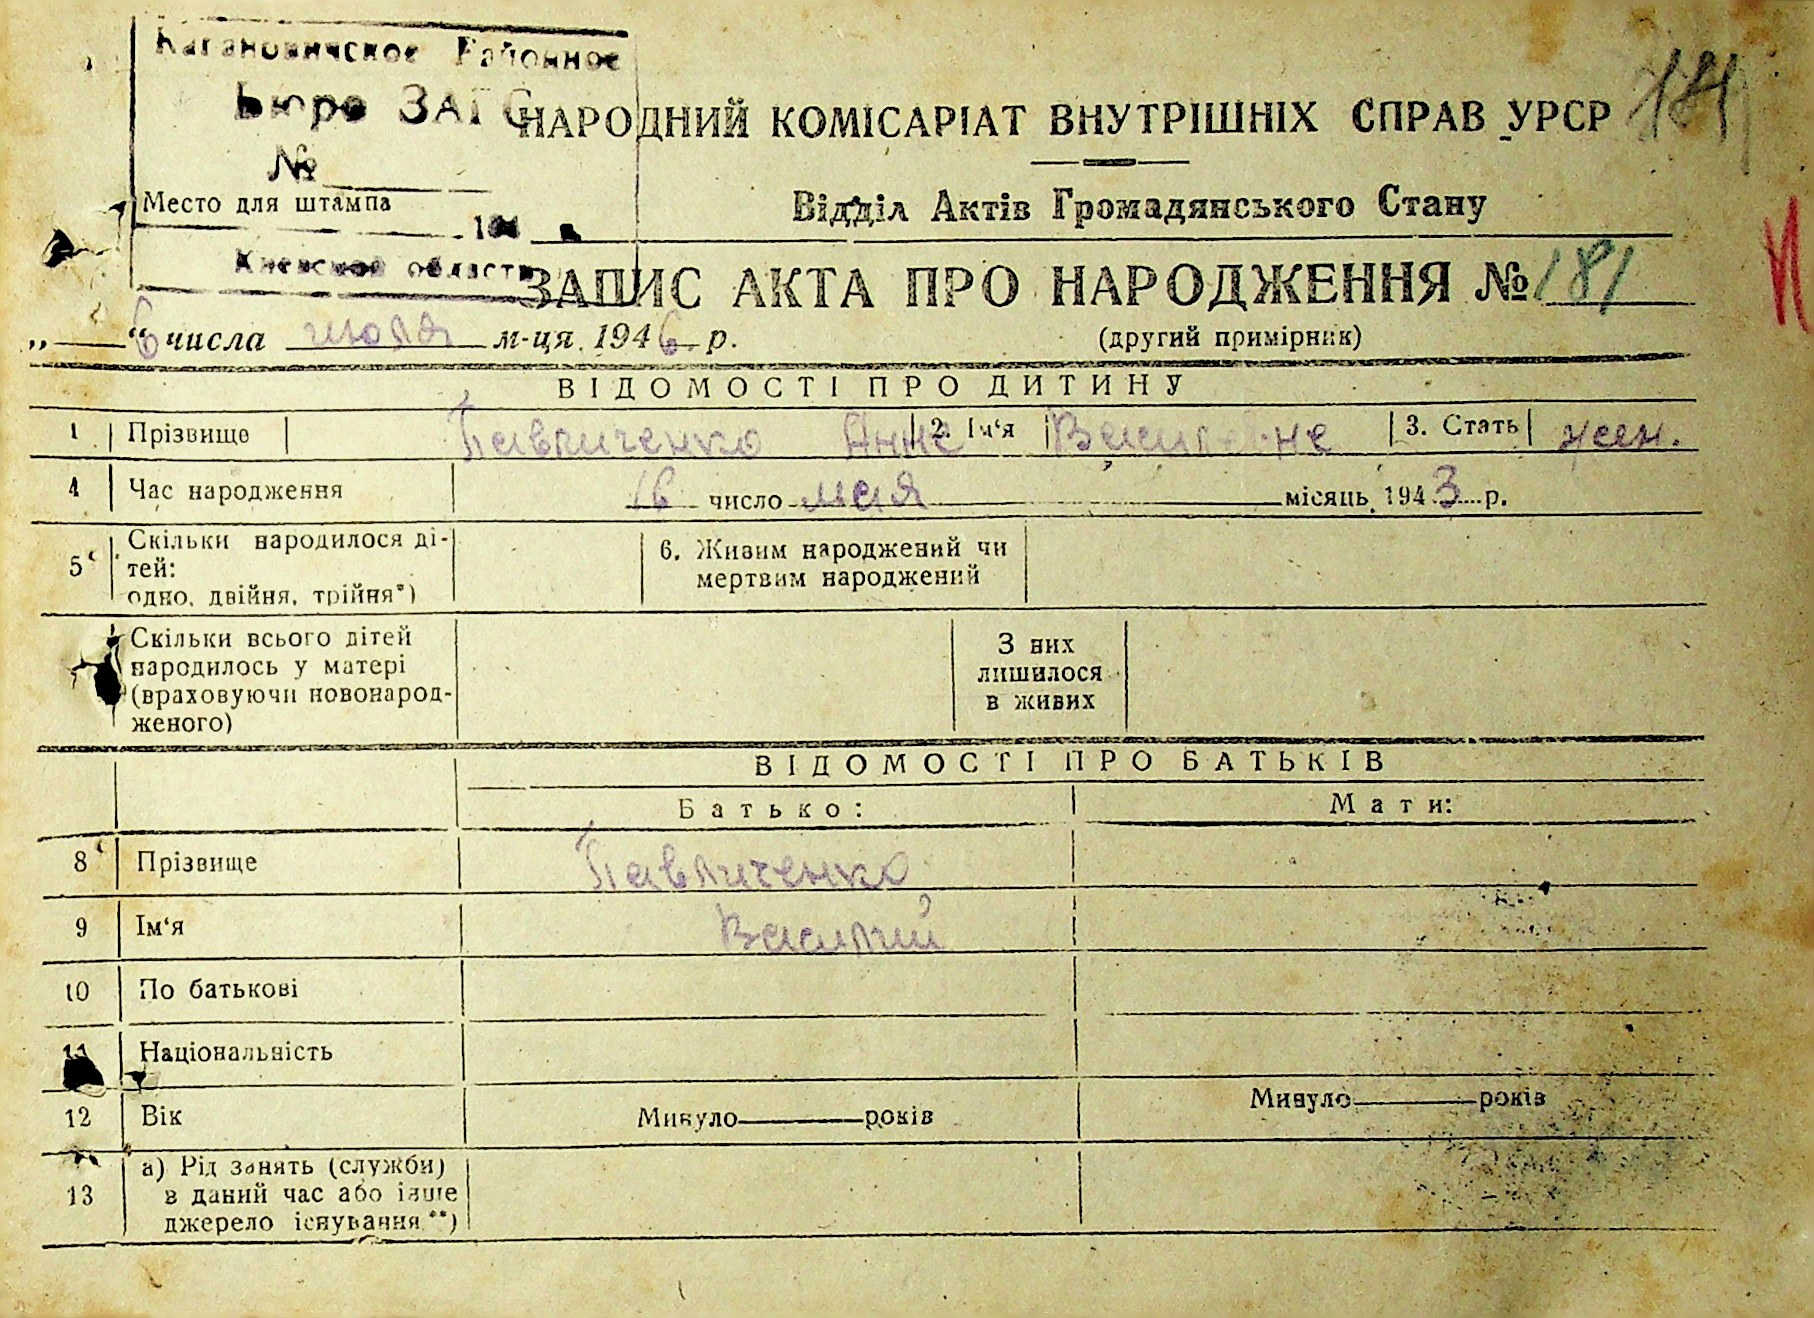 Кагановичское Районное
Бюро ЗАГС
№
Место для штампа
194
Киевской области
НАРОДНИЙ КОМІСАРІАТ ВНУТРІШНІХ СПРАВ УРСР
Відділ Актів Громадянського Стану
ЗАПИС АКТА ПРО НАРОДЖЕННЯ № 181
„ “ 6 числа июля м-ця 1946 р.
(другий примірник)
ВІДОМОСТІ ПРО ДИТИНУ
1 Прізвище Павличенко Анна 2. Ім‘я 3. Стать жен.
4 Час народження 16 число мая місяць 1943 р.
5 Скільки народилося ді-
тей:
одно, двійня, трійня*)
6. Живим народжений чи
мертвим народжений
Скільки всього дітей
народилось у матері
(враховуючи новонарод-
женого)
З них
лишилося
в живих
ВІДОМОСТІ ПРО БАТЬКІВ
Батько: Мати:
8 Прізвище Павличенко
9 Ім‘я Василий
10 По батькові
11 Національність
12 Вік Минуло років Минуло років
13 а) Рід занять (служби)
в даний час або інше
джерело існування **)